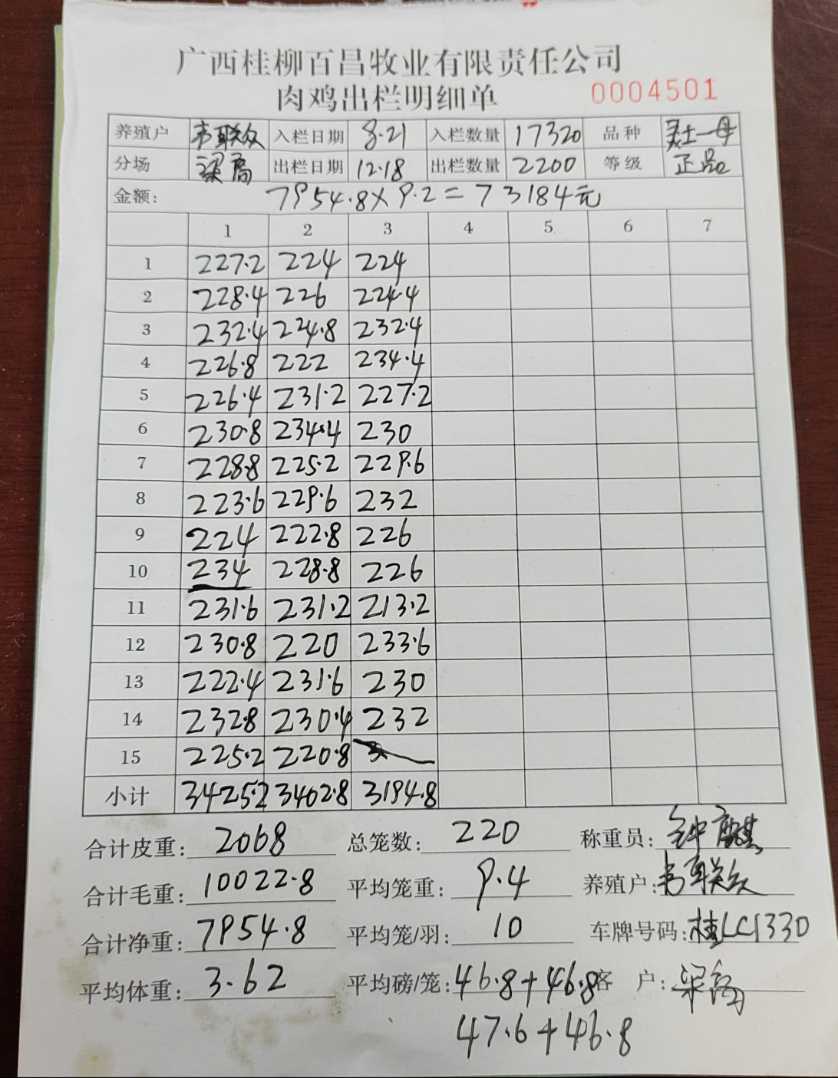 广西桂柳百昌牧业有限责任公司
肉鸡出栏明细单 0004501
养殖户 韦联众 入栏日期 8.21 入栏数量 17320 品种 土一母
分场 梁高 出栏日期 12.18 出栏数量 2200 等级 正品
金额: 7954.8×9.2=73184元
1 2 3 4 5 6 7
1 227.2 224 224
2 228.4 226 224.4
3 232.4 224.8 232.4
4 226.8 222 234.4
5 226.4 231.2 227.2
6 230.8 234.4 230
7 228.8 225.2 229.6
8 223.6 229.6 232
9 224 222.8 226
10 234 228.8 226
11 231.6 231.2 213.2
12 230.8 220 233.6
13 222.4 231.6 230
14 232.8 230.4 232
15 225.2 220.8
小计 3425.2 3402.8 3194.8
合计皮重: 2068 总笼数: 220 称重员: 钟麒
合计毛重: 10022.8 平均笼重: 9.4 养殖户: 韦联众
合计净重: 7954.8 平均笼/羽: 10 车牌号码: 桂LC1330
平均体重: 3.62 平均磅/笼: 46.8+46.8 客 户: 梁高
47.6+46.8